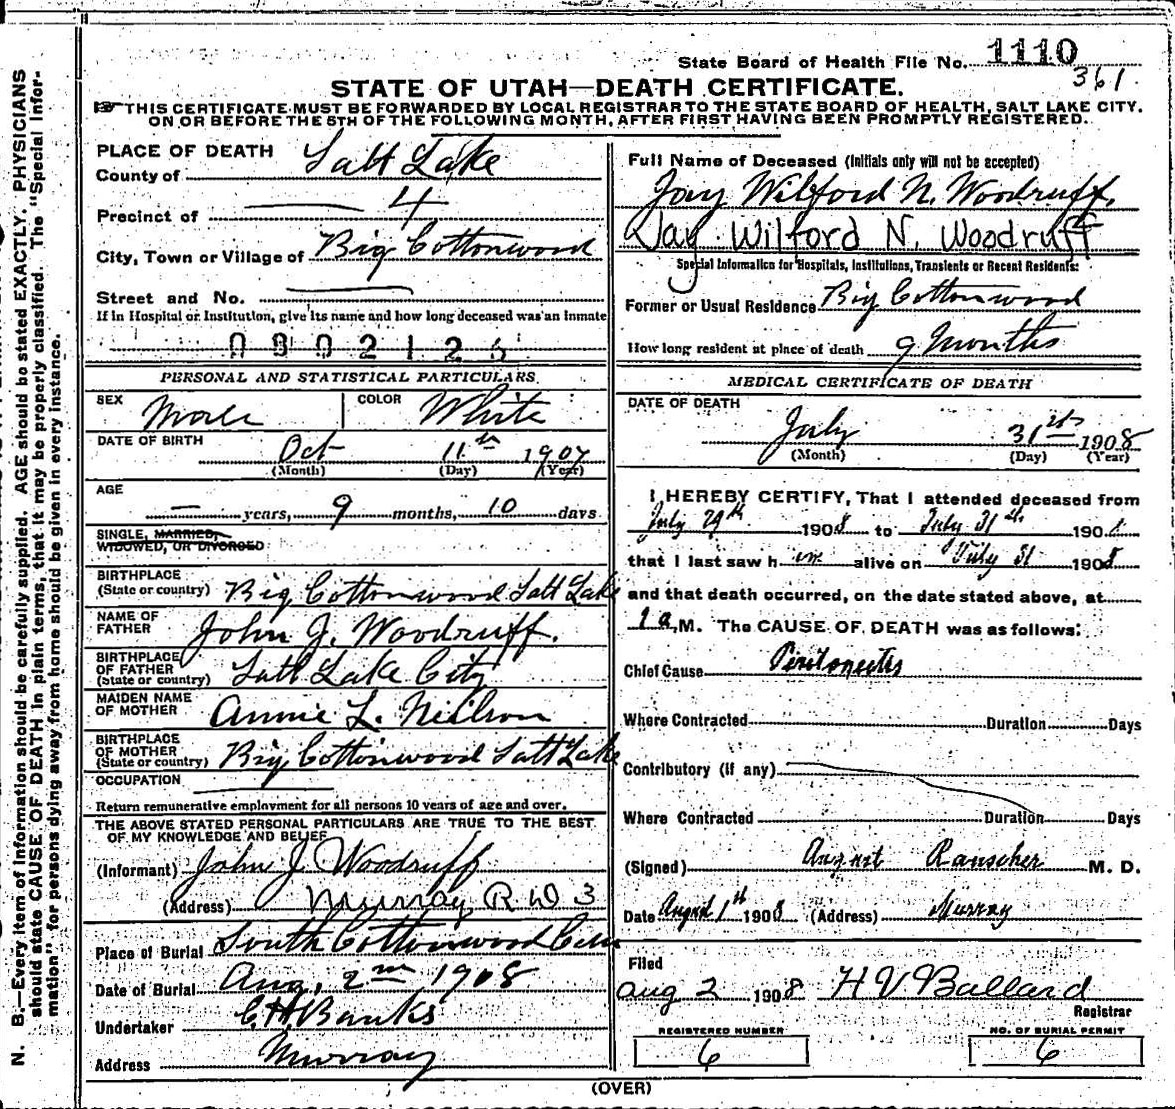 State Board of Health File No. 1110
361
STATE OF UTAH—DEATH CERTIFICATE.
THIS CERTIFICATE MUST BE FORWARDED BY LOCAL REGISTRAR TO THE STATE BOARD OF HEALTH, SALT LAKE CITY.
ON OR BEFORE THE 5TH OF THE FOLLOWING MONTH, AFTER FIRST HAVING BEEN PROMPTLY REGISTERED.
PLACE OF DEATH
County of Salt Lake
Precinct of 4
City, Town or Village of Big Cottonwood
Street and No.
If in Hospital or Institution, give its name and how long deceased was an inmate
PERSONAL AND STATISTICAL PARTICULARS
SEX Male COLOR White
DATE OF BIRTH Oct 11th 1907
(Month) (Day) (Year)
AGE
— years, 9 months, 10 days
SINGLE, MARRIED,
WIDOWED, OR DIVORCED
BIRTHPLACE
(State or country) Big Cottonwood Salt Lake
NAME OF
FATHER John J. Woodruff.
BIRTHPLACE
OF FATHER
(State or country) Salt Lake City
MAIDEN NAME
OF MOTHER Annie L. Neilson
BIRTHPLACE
OF MOTHER
(State or country) Big Cottonwood Salt Lake
OCCUPATION
Return remunerative employment for all persons 10 years of age and over.
THE ABOVE STATED PERSONAL PARTICULARS ARE TRUE TO THE BEST
OF MY KNOWLEDGE AND BELIEF
(Informant) John J Woodruff
(Address) Murray R D 3
Place of Burial South Cottonwood Cem
Date of Burial Aug. 2nd 1908
Undertaker Banks
Address Murray
Full Name of Deceased (Initials only will not be accepted)
Jay Wilford N. Woodruff.
Jay Wilford N. Woodruff
Special Information for Hospitals, Institutions, Transients or Recent Residents:
Former or Usual Residence Big Cottonwood
How long resident at place of death 9 Months
MEDICAL CERTIFICATE OF DEATH
DATE OF DEATH
July 31st 1908
(Month) (Day) (Year)
I HEREBY CERTIFY, That I attended deceased from
July 29th 1908 to July 31st 1908
that I last saw h im alive on July 31 1908
and that death occurred, on the date stated above, at
M. The CAUSE OF DEATH was as follows:
Chief Cause Peritoneitis
Where Contracted Duration Days
Contributory (if any)
Where Contracted Duration Days
(Signed) August Rauscher M. D.
Date August 1st 1908 (Address) Murray
Filed
Aug 2 1908 H V Ballard
Registrar
REGISTERED NUMBER
6
NO. OF BURIAL PERMIT
6
(OVER)
N. B.—Every item of information should be carefully supplied. AGE should be stated EXACTLY. PHYSICIANS
should state CAUSE OF DEATH in plain terms, that it may be properly classified. The "Special Infor-
mation" for persons dying away from home should be given in every instance.